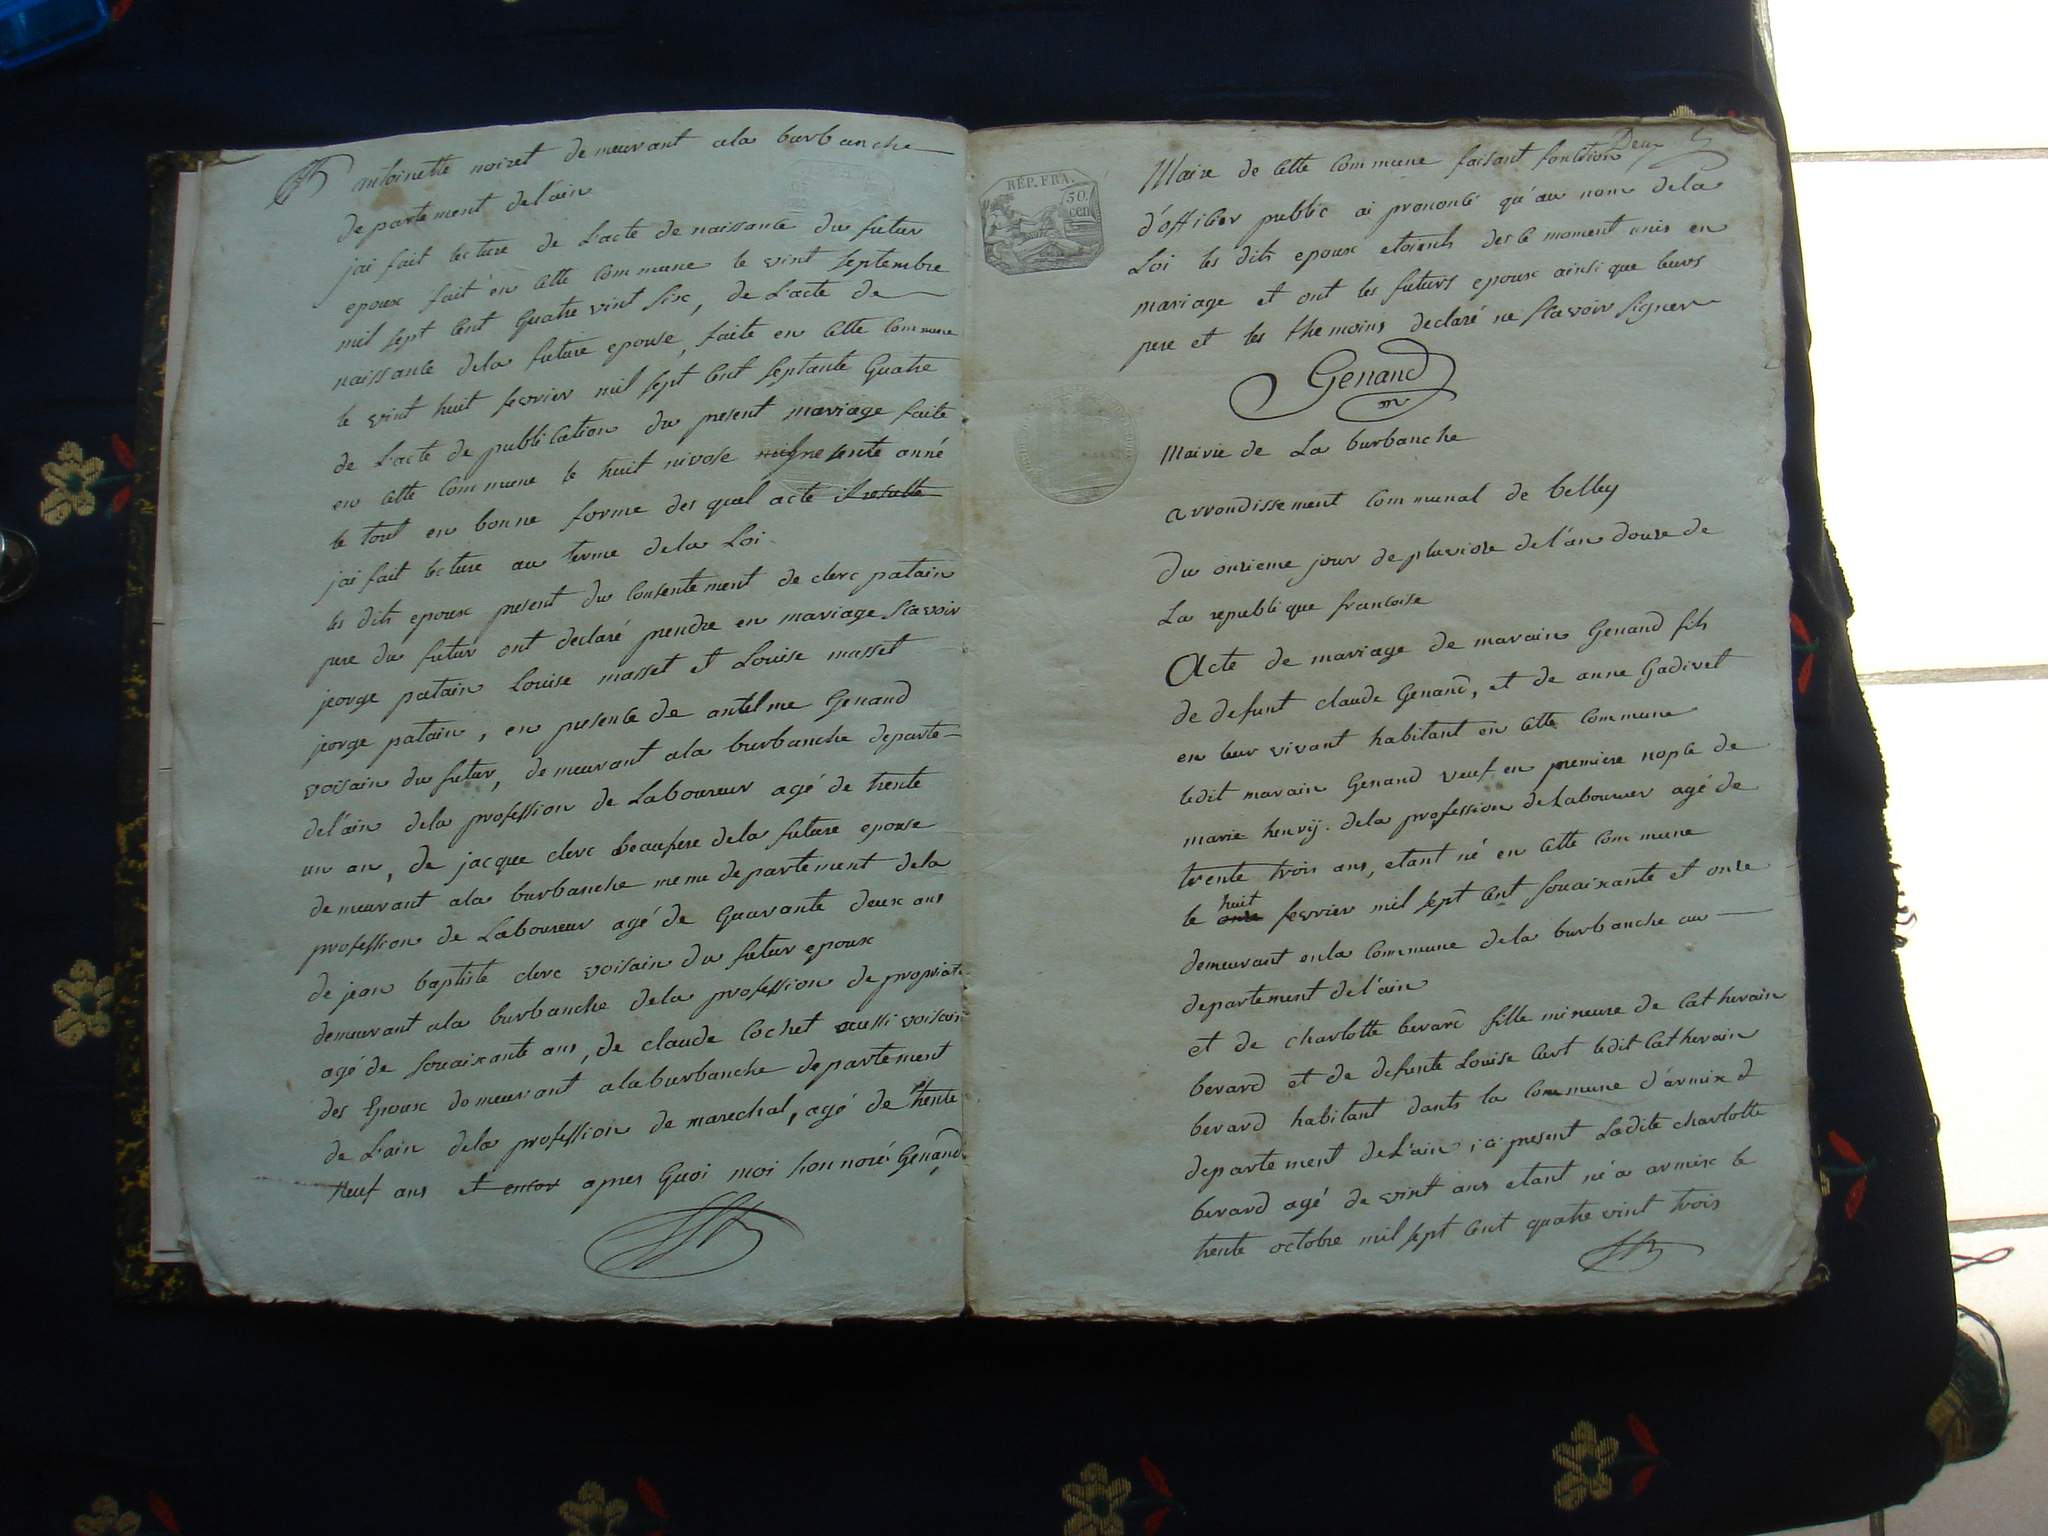 antoinette noiret demeurant ala burbanche
departement delain
jai fait lecture de Lacte de naissance du futur
epoux fait en cette commune le vint septembre
mil sept cent quatre vint six, de Lacte de
naissance dela future epouse, faite en cette commune
le vint huit fevrier mil sept cent septante quatre
de Lacte de publication du present mariage faite
en cette commune le huit nivose presente anné
le tout en bonne forme des quel acte il resulte
jai fait lecture au terme dela Loi
les dits epoux present du consentement de clerc patain
pere du futur ont declaré prendre en mariage scavoir
jeorge patain Louise masset et Louise masset
jeorge patain, en presence de antelme Genand
voisain du futur, demeurant ala burbanche departe-
delain dela profession de Laboureur agé de trente
un an, de jacque clerc beaufere dela future epouse
demeurant ala burbanche meme departement dela
profession de Laboureur agé de quarante deux ans
de jean baptiste clerc voisain du futur epoux
demeurant ala burbanche dela profession de propriat
agé de souaixante ans, de claude Cochet aussi voisain
des Epoux demeurant ala burbanche departement
de Lain dela profession de marechal, agé de trente
Neuf ans et encor apres Quoi moi honnoré Genand
Deux
RÉP. FRA.
50. cen
Maire de cette commune faisant fonction
d'officier public ai prononcé qu'au nom dela
Loi les dits epoux etoients des ce moment unis en
mariage et ont les futurs epoux ainsi que leurs
pere et les themoins declaré ne scavoir signer
Genand
m
Mairie de La burbanche
arrondissement communal de belley
Du onzieme jour de pluviose del'an douze de
La republique francoise
Acte de mariage de marain Genand fils
de defunt claude Genand, et de anne Gadivet
en leur vivant habitant en cette commune
ledit marain Genand veuf en premiere nopce de
marie henrij. dela profession de Laboureur agé de
trente trois ans, etant né en cette commune
huit
le onze fevrier mil sept cent souaixante et onze
demeurant en la commune dela burbanche au
departement de l'ain
et de charlotte berard fille mineure de Catherain
berard et de defunte Louise Curt ledit Catherain
berard habitant dants la commune d'armix d
departement de L'ain, ici present Ladite charlotte
berard agé de vint ans etant né a armix le
trente octobre mil sept cent quatre vint trois